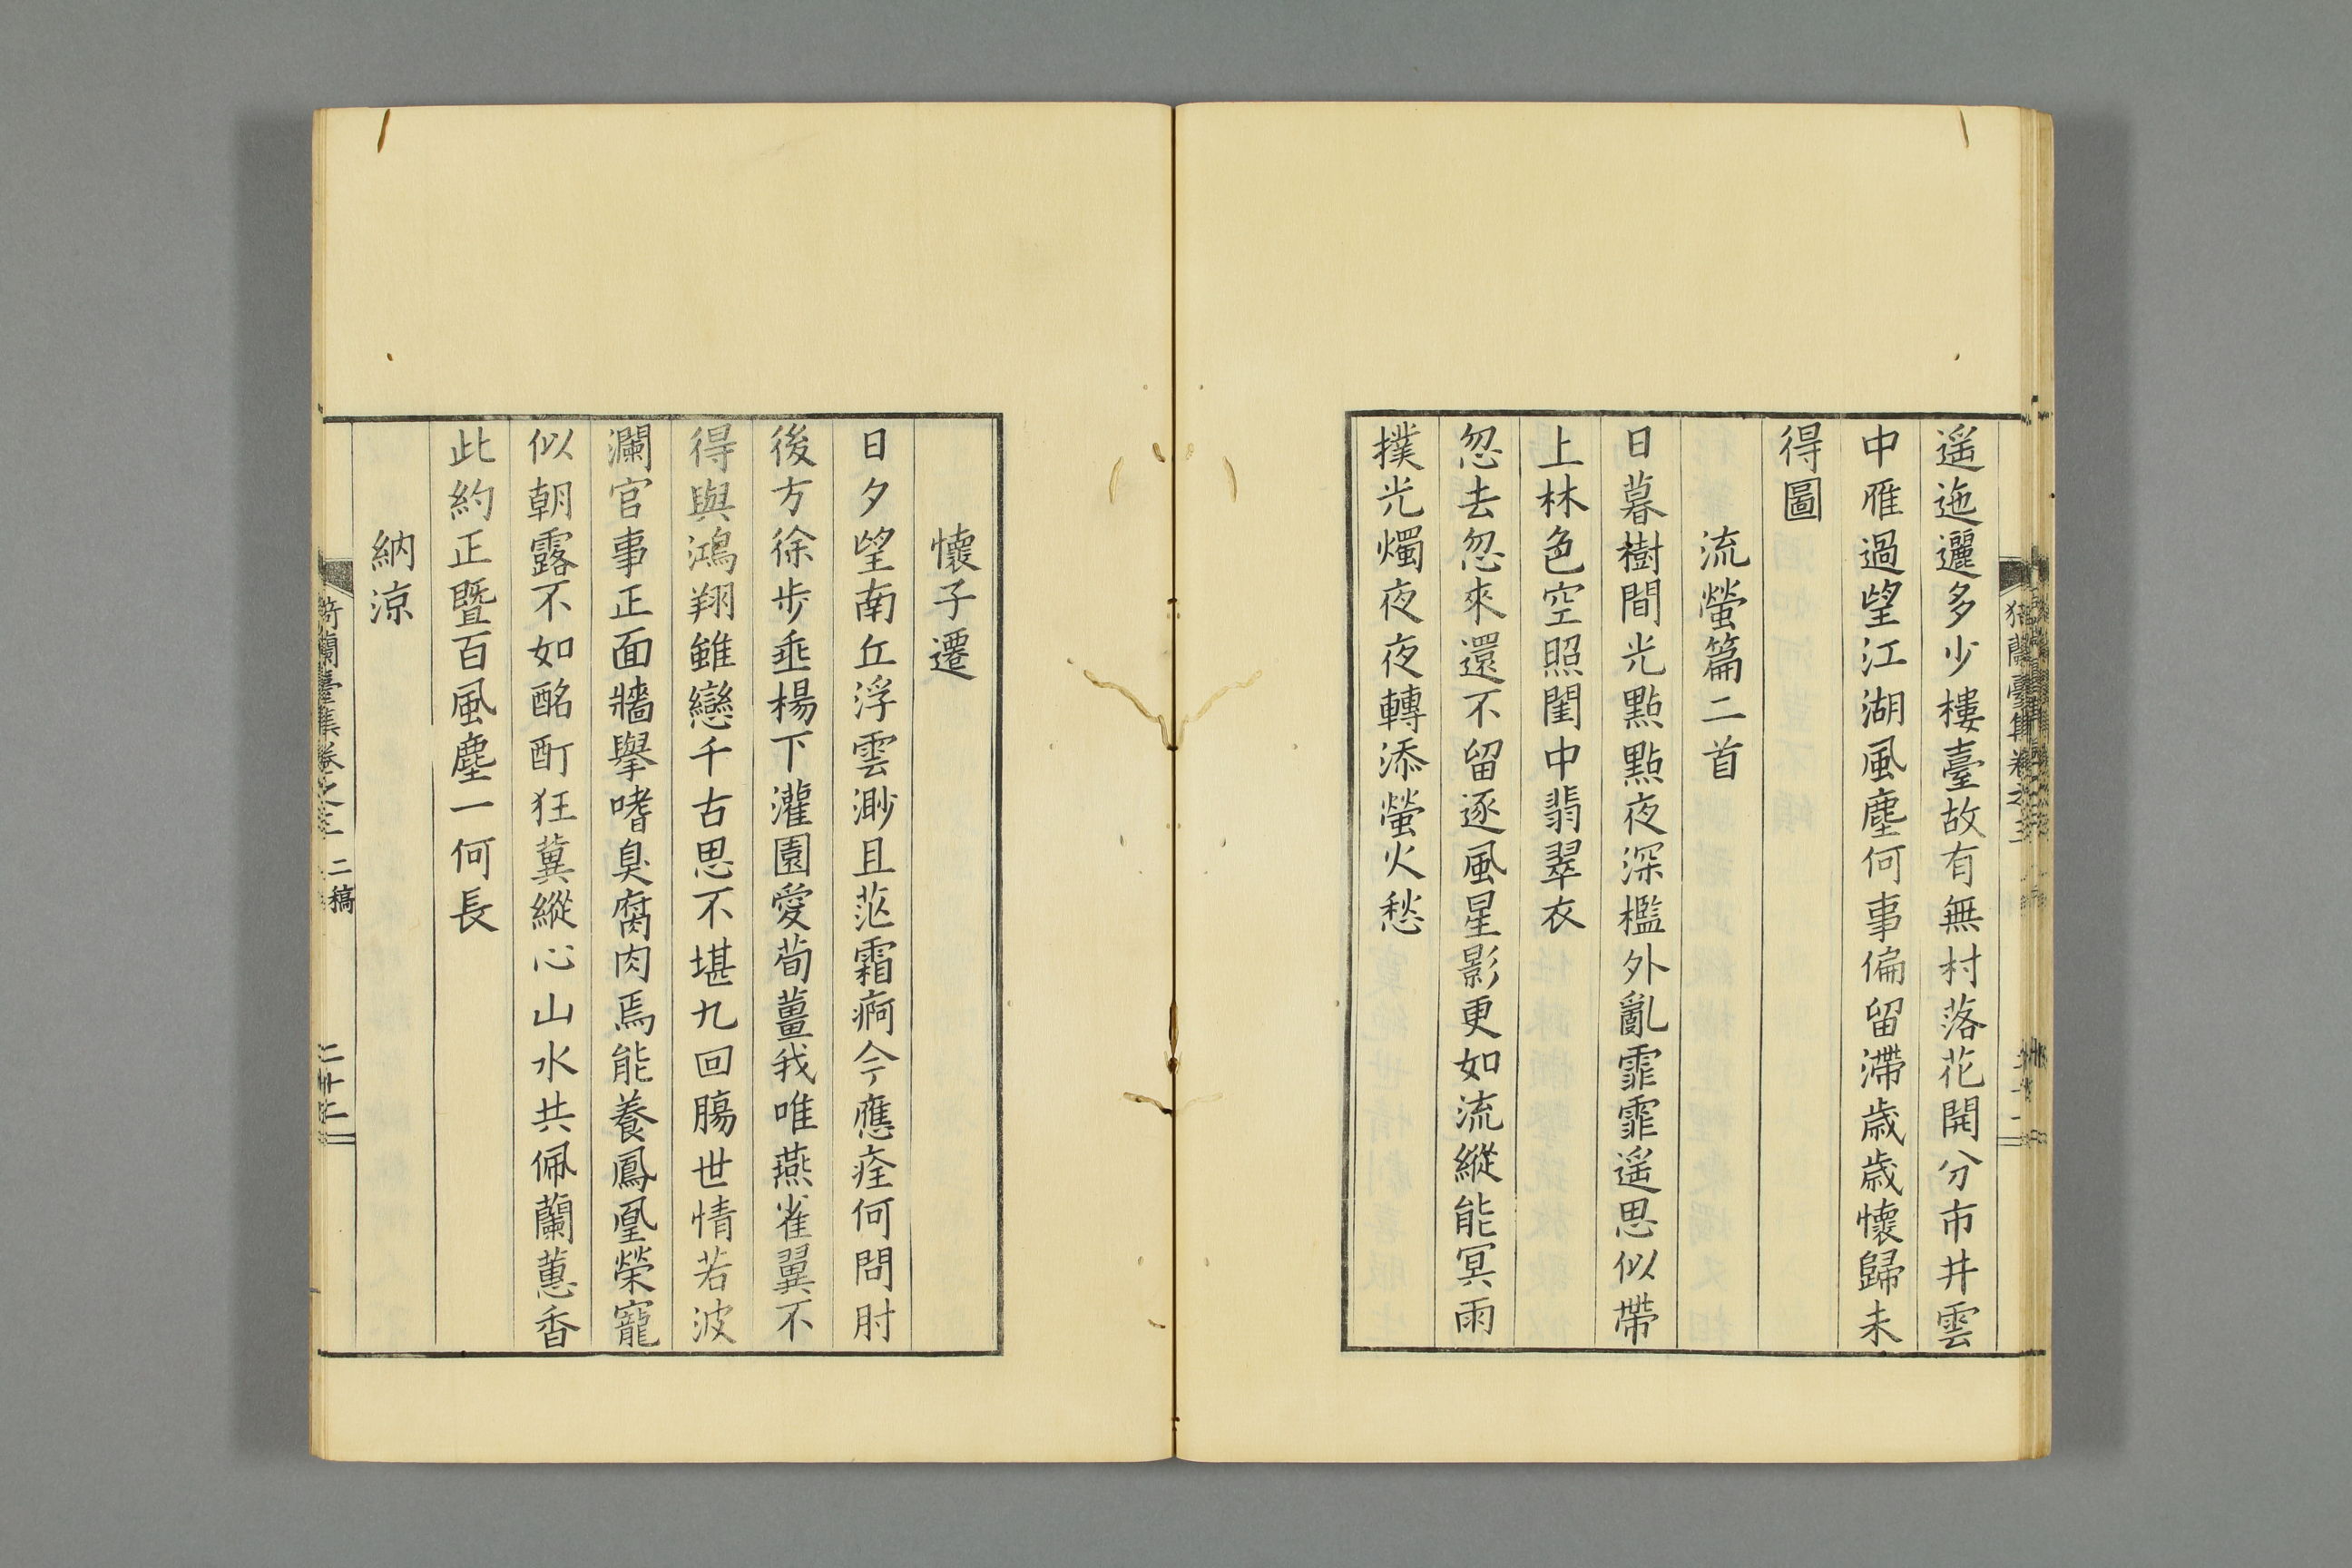 遥迤邐多少樓臺故有無村落花開分市井雲
中雁過望江湖風塵何事偏留滯歳歳懷歸未
得圖
流螢篇二首
日暮樹間光點點夜深檻外亂霏霏遥思似帶
上林色空照閨中翡翠衣
忽去忽來還不留逐風星影更如流縱能冥雨
撲光燭夜夜轉添螢火愁
懷子遷
日夕望南丘浮雲渺且茫霜痾今應痊何問肘
後方徐步垂楊下灌園愛荀薑我唯燕雀翼不
得與鴻翔雖戀千古思不堪九回膓世情若波
瀾官事正面牆擧嗜臭腐肉焉能養鳳凰榮寵
似朝露不如酩酊狂冀縱心山水共佩蘭蕙香
此約正曁百風塵一何長
納涼
蘭臺集卷之三 二稿